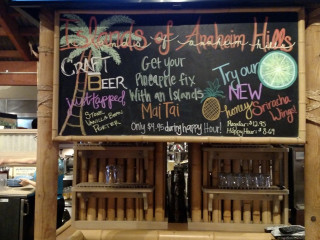 Islands of Anaheim Hills
CRAFT
BEER
just tapped
STONE
VANILLA BEAN
PORTER
Get your
Pineapple fix
With an Islands
Mai Tai
Only $4.95 during happy Hour!
Try our
NEW
honey Sriracha
Wings!
Regular: $12.95
Happy Hour: $8.69